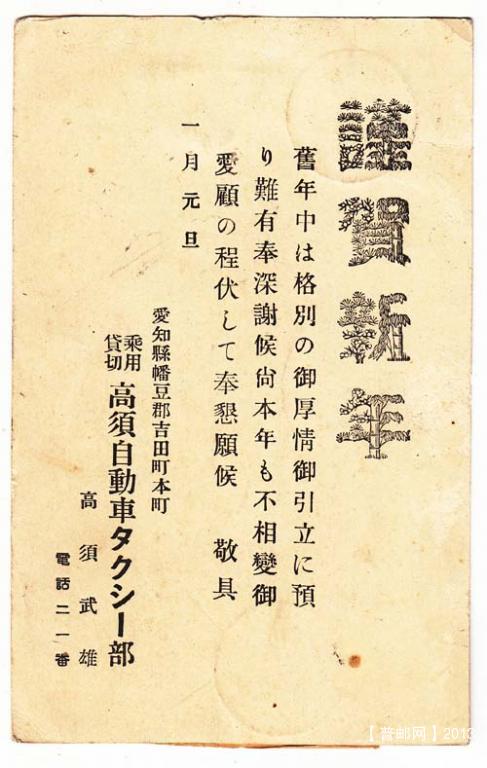 謹賀新年
舊年中は格別の御厚情御引立に預
り難有奉深謝候尙本年も不相變御
愛顧の程伏して奉懇願候 敬具
一月元旦
愛知縣幡豆郡吉田町本町
乘用
貸切
高須自動車タクシー部
高須武雄
電話二一番
【普邮网】2013